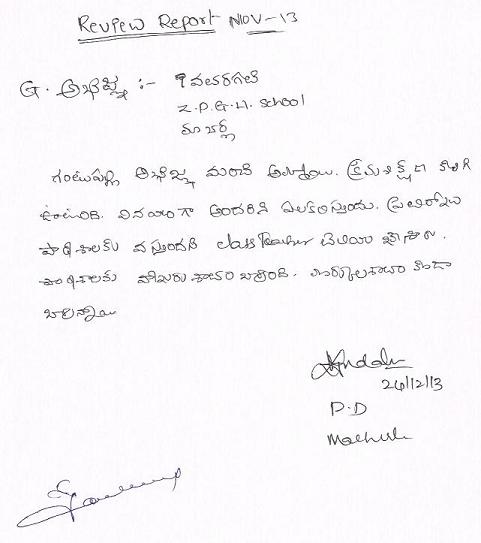 Review Report NOV-13
G. అభిజ్ఞ :- 9 వతరగతి
Z.P.G.H. School
మాచర్ల
గంటుపల్లి అభిజ్ఞ మంచి అమ్మాయి. క్రమశిక్షణ కలిగి
ఉంటుంది. వినయంగా అందరిని పలకరిస్తుంది. ప్రతిరోజు
పాఠశాలకు వస్తుందని class Teacher తెలియ జేశారు.
పాఠశాలకు హాజరు శాతం బాగుంది. మార్కుల శాతం కూడా
బాగున్నాయి
24/12/13
P.D
Macherla